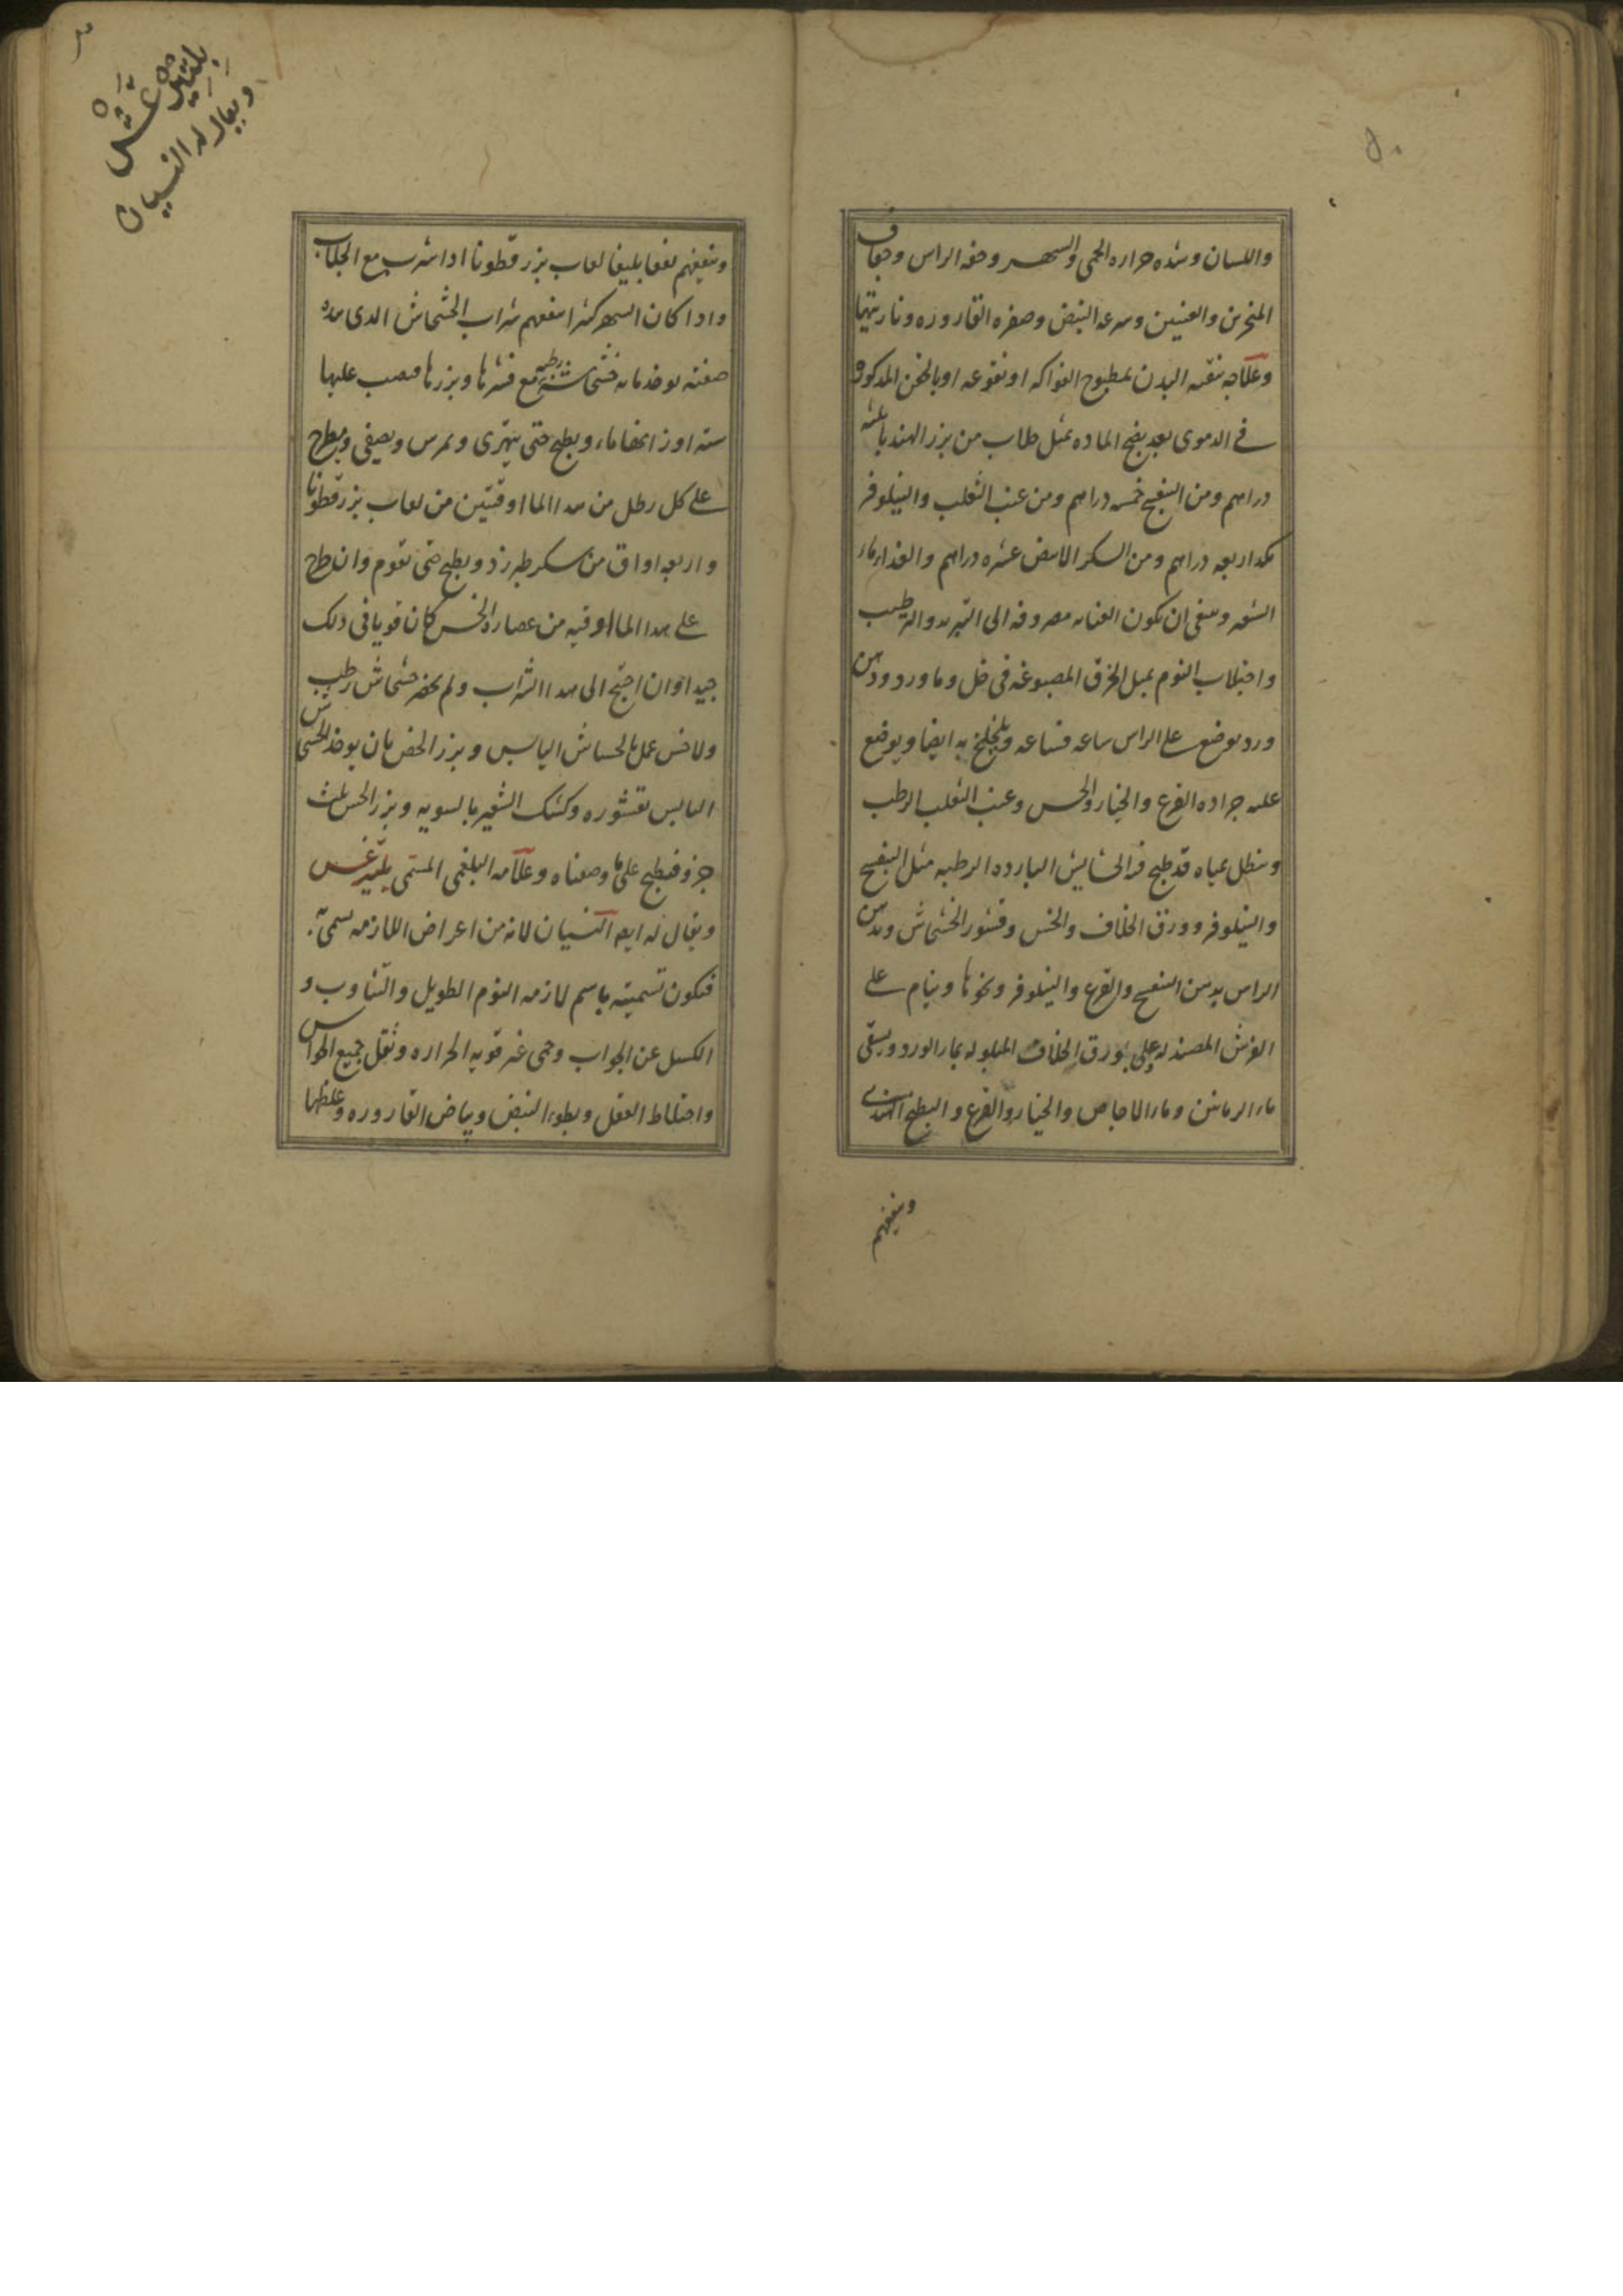 واللسان وشده حراره الحمى والسهر وخفه الراس وجفاف
المنخرين والعينين وسرعه النبض وصفره القاروره وناريتها
وعلاجه تنقيه البدن بمطبوخ الفواكه او نقوعه او بالحقن المذكوره
في الدموى بعد نضج الماده بمثل جلاب من بزر الهندبا عشره
دراهم ومن البنفسج خمسه دراهم ومن عنب الثعلب والنيلوفر
مكد اربعه دراهم ومن السكر الابيض عشره دراهم والغذاء ماء
الشعير وينبغى ان يكون العنايه مصروفه الى التبريد والترطيب
واجتلاب النوم بمثل الخرق المصبوغه فى خل وماورد ودهن
ورد يوضع على الراس ساعه فساعه ويلخلخ به ايضا ويوضع
عليه جراده القرع والخيار والخس وعنب الثعلب الرطب
وينطل بمياه قد طبخ فيها الحشايش البارده الرطبه مثل البنفسج
والنيلوفر وورق الخلاف والخس وقشور الخشخاش ويدهن
الراس بدهن البنفسج والقرع والنيلوفر ونحوها وينام على
الفرش المصندله وعلى ورق الخلاف المبلوله بماء الورد ويسقى
ماء الرمانين وماء الاجاص والخيار والقرع والبطيخ الهندى
وينفعهم
بليثرغس
ويقال له النسيان
وينفعهم نفعا بليغا لعاب بزر قطونا اذا شرب مع الجلاب
واذا كان السهر كثيرا ينفعهم شراب الخشخاش الذى هذه
صفته يوخذ مايه خشخاشه رطبه مع قشرها وبزرها فيصب عليها
سته اوزانها ماء ويطبخ حتى يتهرى ويمرس ويصفى ويطرح
على كل رطل من هذا الما اوقيتين من لعاب بزر قطونا
واربعه اواق من سكر طبرزذ ويطبخ حتى تقوم وان طرح
على هذا الما اوقيه من عصاره الخس كان قويا فى ذلك
جيدا وان احتج الى هذا الشراب ولم يحضر خشخاش رطب
ولا خس عمل بالخشخاش اليابس وبزر الخس بان يوخذ الخشخاش
اليابس بقشوره وكشك الشعير بالسويه وبزر الخس ثلث
جزو فيطبخ على ما وصفناه وعلامه البلغمى المسمى بليثرغس
ويقال له ايضا النسيان لانه من اعراض اللازمه سمى به
فتكون تسميته باسم لازمه النوم الطويل والتثاوب و
الكسل عن الجواب وحمى غير قويه الحراره وثقل جميع الحواس
واختلاط العقل وبطوء النبض وبياض القاروره وغلظها